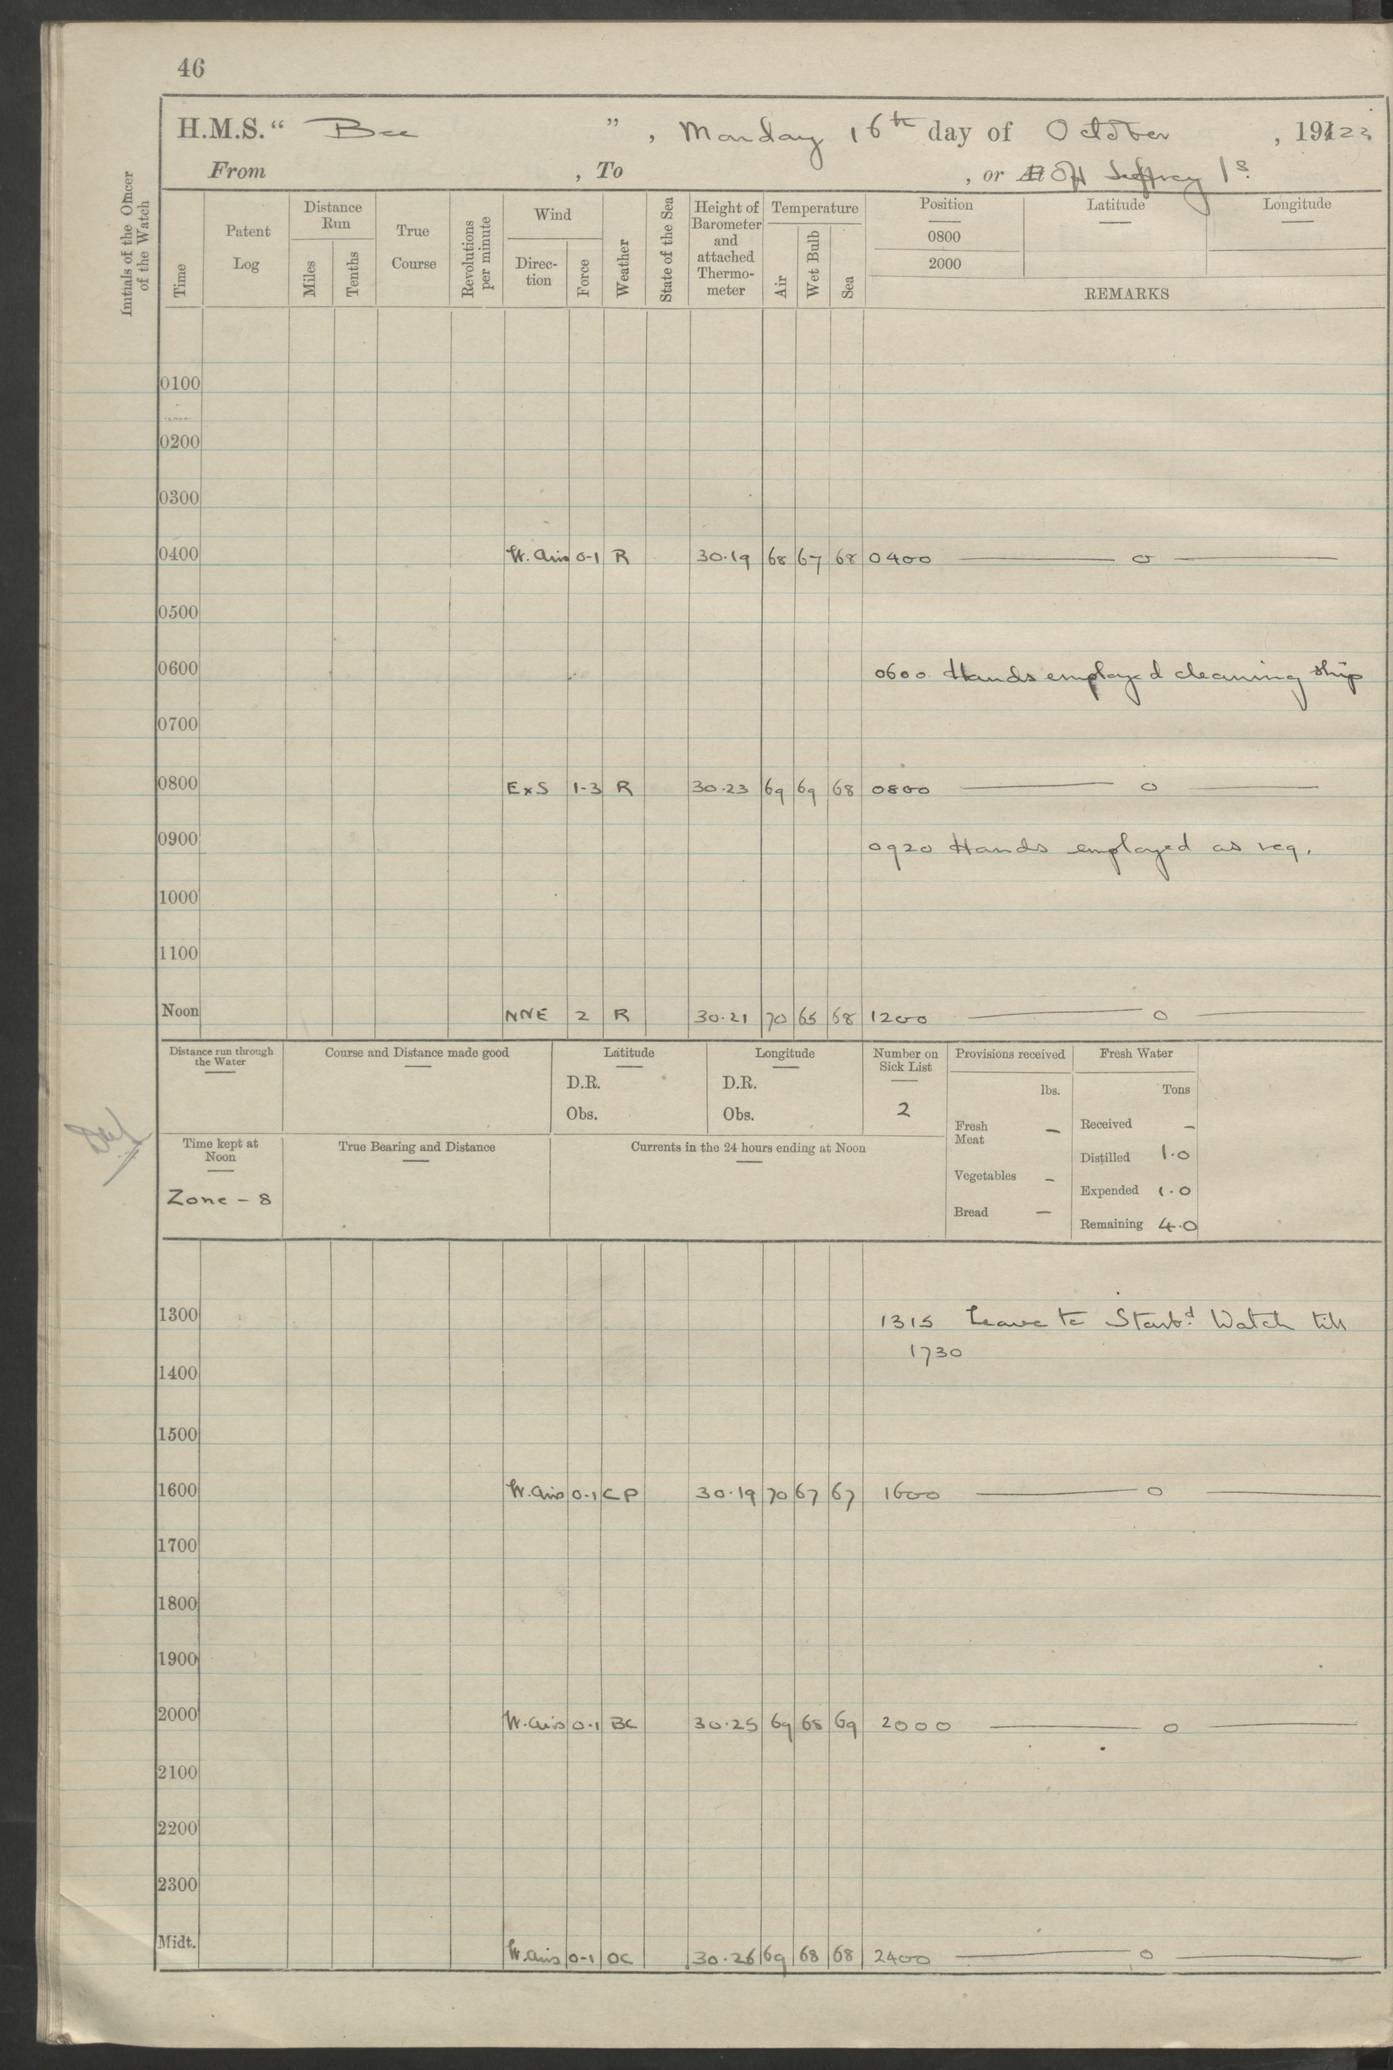 46
H.M.S. " Bee " , Monday 16th day of October , 1922
From , To , or At Off Jeffray Is.
Initials of the Officer of the Watch
Time
Patent Log
Distance Run
Miles
Tenths
True Course
Revolutions per minute
Wind
Direc-tion
Force
Weather
State of the Sea
Height of Barometer and attached Thermo-meter
Temperature
Air
Wet Bulb
Sea
Position
0800
2000
Latitude
Longitude
REMARKS
0100
0200
0300
0400 Lt. airs 0-1 R 30.19 68 67 68 0400 — o —
0500
0600 0600 Hands employed cleaning ship
0700
0800 E x S 1-3 R 30.23 69 69 68 0800 — o —
0900 0920 Hands employed as req.
1000
1100
Noon NNE 2 R 30.21 70 65 68 1200 — o —
Distance run through the Water
Course and Distance made good
Latitude
D.R.
Obs.
Longitude
D.R.
Obs.
Number on Sick List
2
Provisions received
lbs.
Fresh Meat —
Vegetables —
Bread —
Fresh Water
Tons
Received —
Distilled 1.0
Expended 1.0
Remaining 4.0
Time kept at Noon
Zone - 8
True Bearing and Distance
Currents in the 24 hours ending at Noon
1300 1315 Leave to Starbd. Watch till
1730
1400
1500
1600 Lt. airs 0-1 CP 30.19 70 67 67 1600 — o —
1700
1800
1900
2000 Lt. airs 0-1 BC 30.25 69 68 69 2000 — o —
2100
2200
2300
Midt. Lt. airs 0-1 OC 30.26 69 68 68 2400 — o —